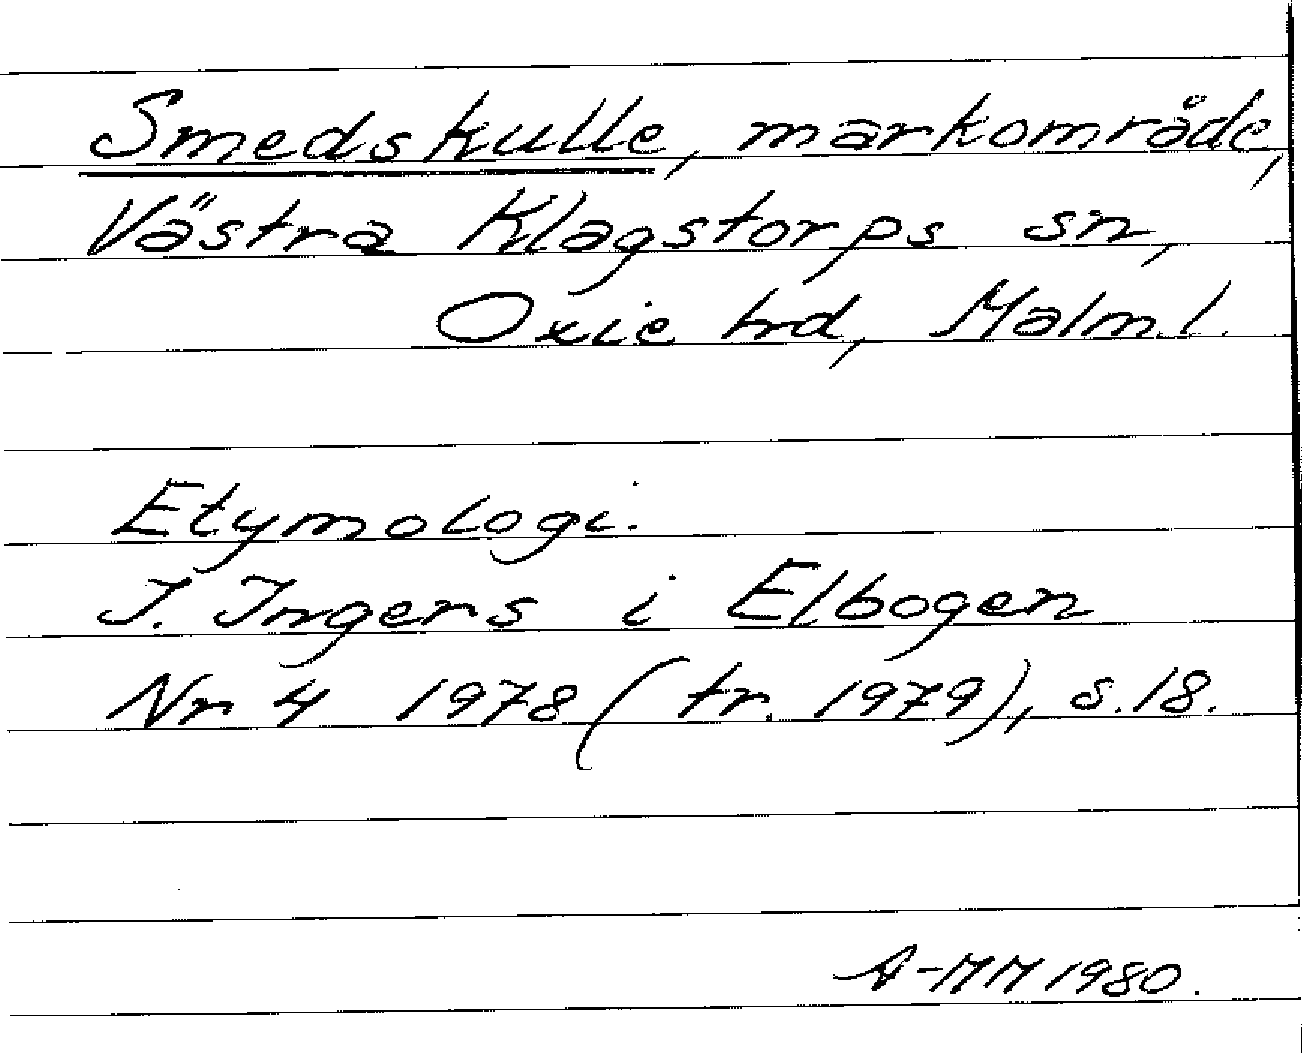 Smedskulle, markområde,
Västra Klagstorps sn,
Oxie hd, Malm. l.
Etymologi.
I. Ingers i Elbogen
Nr 4 1978 (tr. 1979), s. 18.
A-MM 1980.